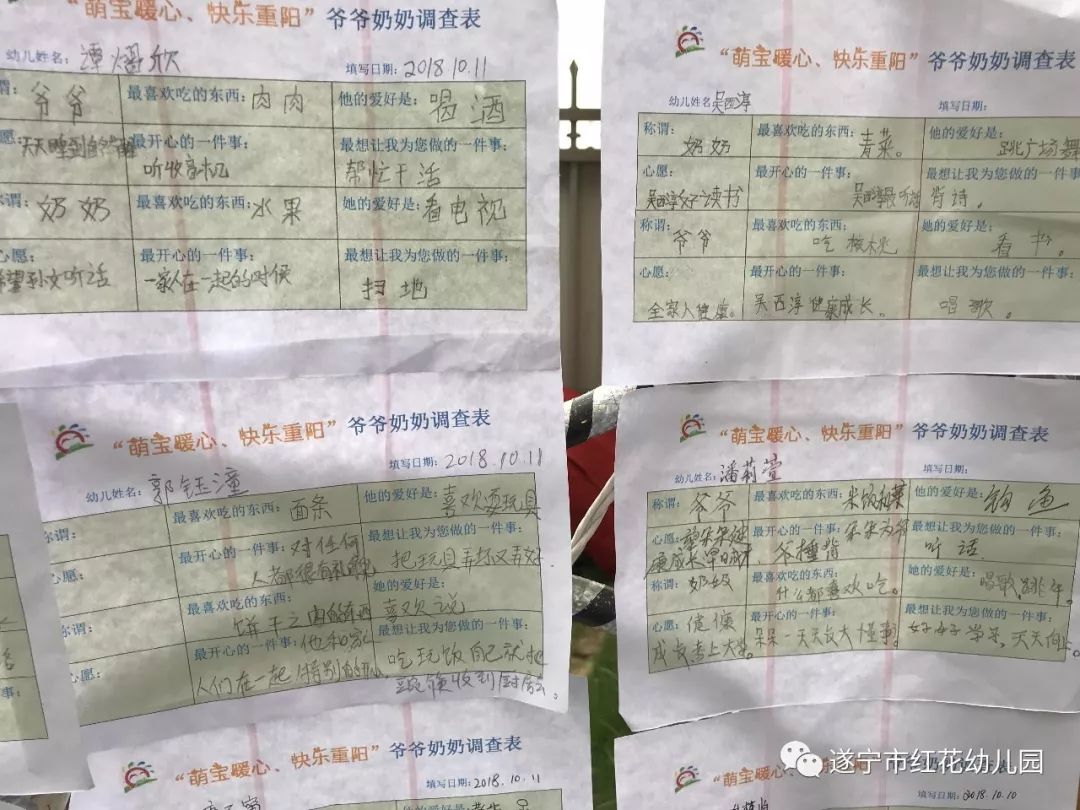 “萌宝暖心、快乐重阳”爷爷奶奶调查表
幼儿姓名:
填写日期:2018.10.11
谓: 爷爷 最喜欢吃的东西:肉肉 他的爱好是:喝酒
愿: 天天睡到自然醒 最开心的一件事: 听收音机 最想让我为您做的一件事: 帮忙干活
称谓: 奶奶 最喜欢吃的东西:水果 她的爱好是:看电视
心愿: 希望孙女听话 最开心的一件事: 一家人在一起的时候 最想让我为您做的一件事: 扫地
“萌宝暖心、快乐重阳”爷爷奶奶调查表
幼儿姓名:吴西淳 填写日期:
称谓: 奶奶 最喜欢吃的东西: 青菜。 他的爱好是: 跳广场舞
心愿: 吴西淳好好读书 最开心的一件事: 吴西淳 听话 最想让我为您做的一件事: 背诗。
称谓: 爷爷 最喜欢吃的东西: 吃核桃 她的爱好是: 看书。
心愿: 全家人健康。 最开心的一件事: 吴西淳健康成长。 最想让我为您做的一件事: 唱歌。
“萌宝暖心、快乐重阳”爷爷奶奶调查表
填写日期:2018.10.11
幼儿姓名:郭钰潼
称谓: 最喜欢吃的东西:面条 他的爱好是:喜欢耍玩具
心愿: 最开心的一件事:对任何人都很有礼貌 最想让我为您做的一件事: 把玩具弄坏又弄好
称谓: 最喜欢吃的东西: 饼干之内的东西 她的爱好是: 喜欢说
心愿: 最开心的一件事:他和家人们在一起特别的开心 最想让我为您做的一件事: 吃玩饭自己就把 收到厨房去。
“萌宝暖心、快乐重阳”爷爷奶奶调查表
幼儿姓名:潘莉萱 填写日期:
称谓: 爷爷 最喜欢吃的东西: 米饭 菜 他的爱好是: 钓鱼
心愿: 朵朵健康成长早日成才 最开心的一件事: 朵朵为爷爷捶背 最想让我为您做的一件事: 听话
称谓: 奶奶 最喜欢吃的东西: 什么都喜欢吃。 她的爱好是: 唱歌、跳舞。
心愿: 健康成长考上大学。 最开心的一件事: 朵朵一天天长大懂事 最想让我为您做的一件事: 好好学习、天天向上。
“萌宝暖心、快乐重阳”爷爷奶奶调查表
填写日期:2018.10.11
“萌宝暖心、快乐重阳”爷爷奶奶调查表
填写日期:2018.10.10
遂宁市红花幼儿园